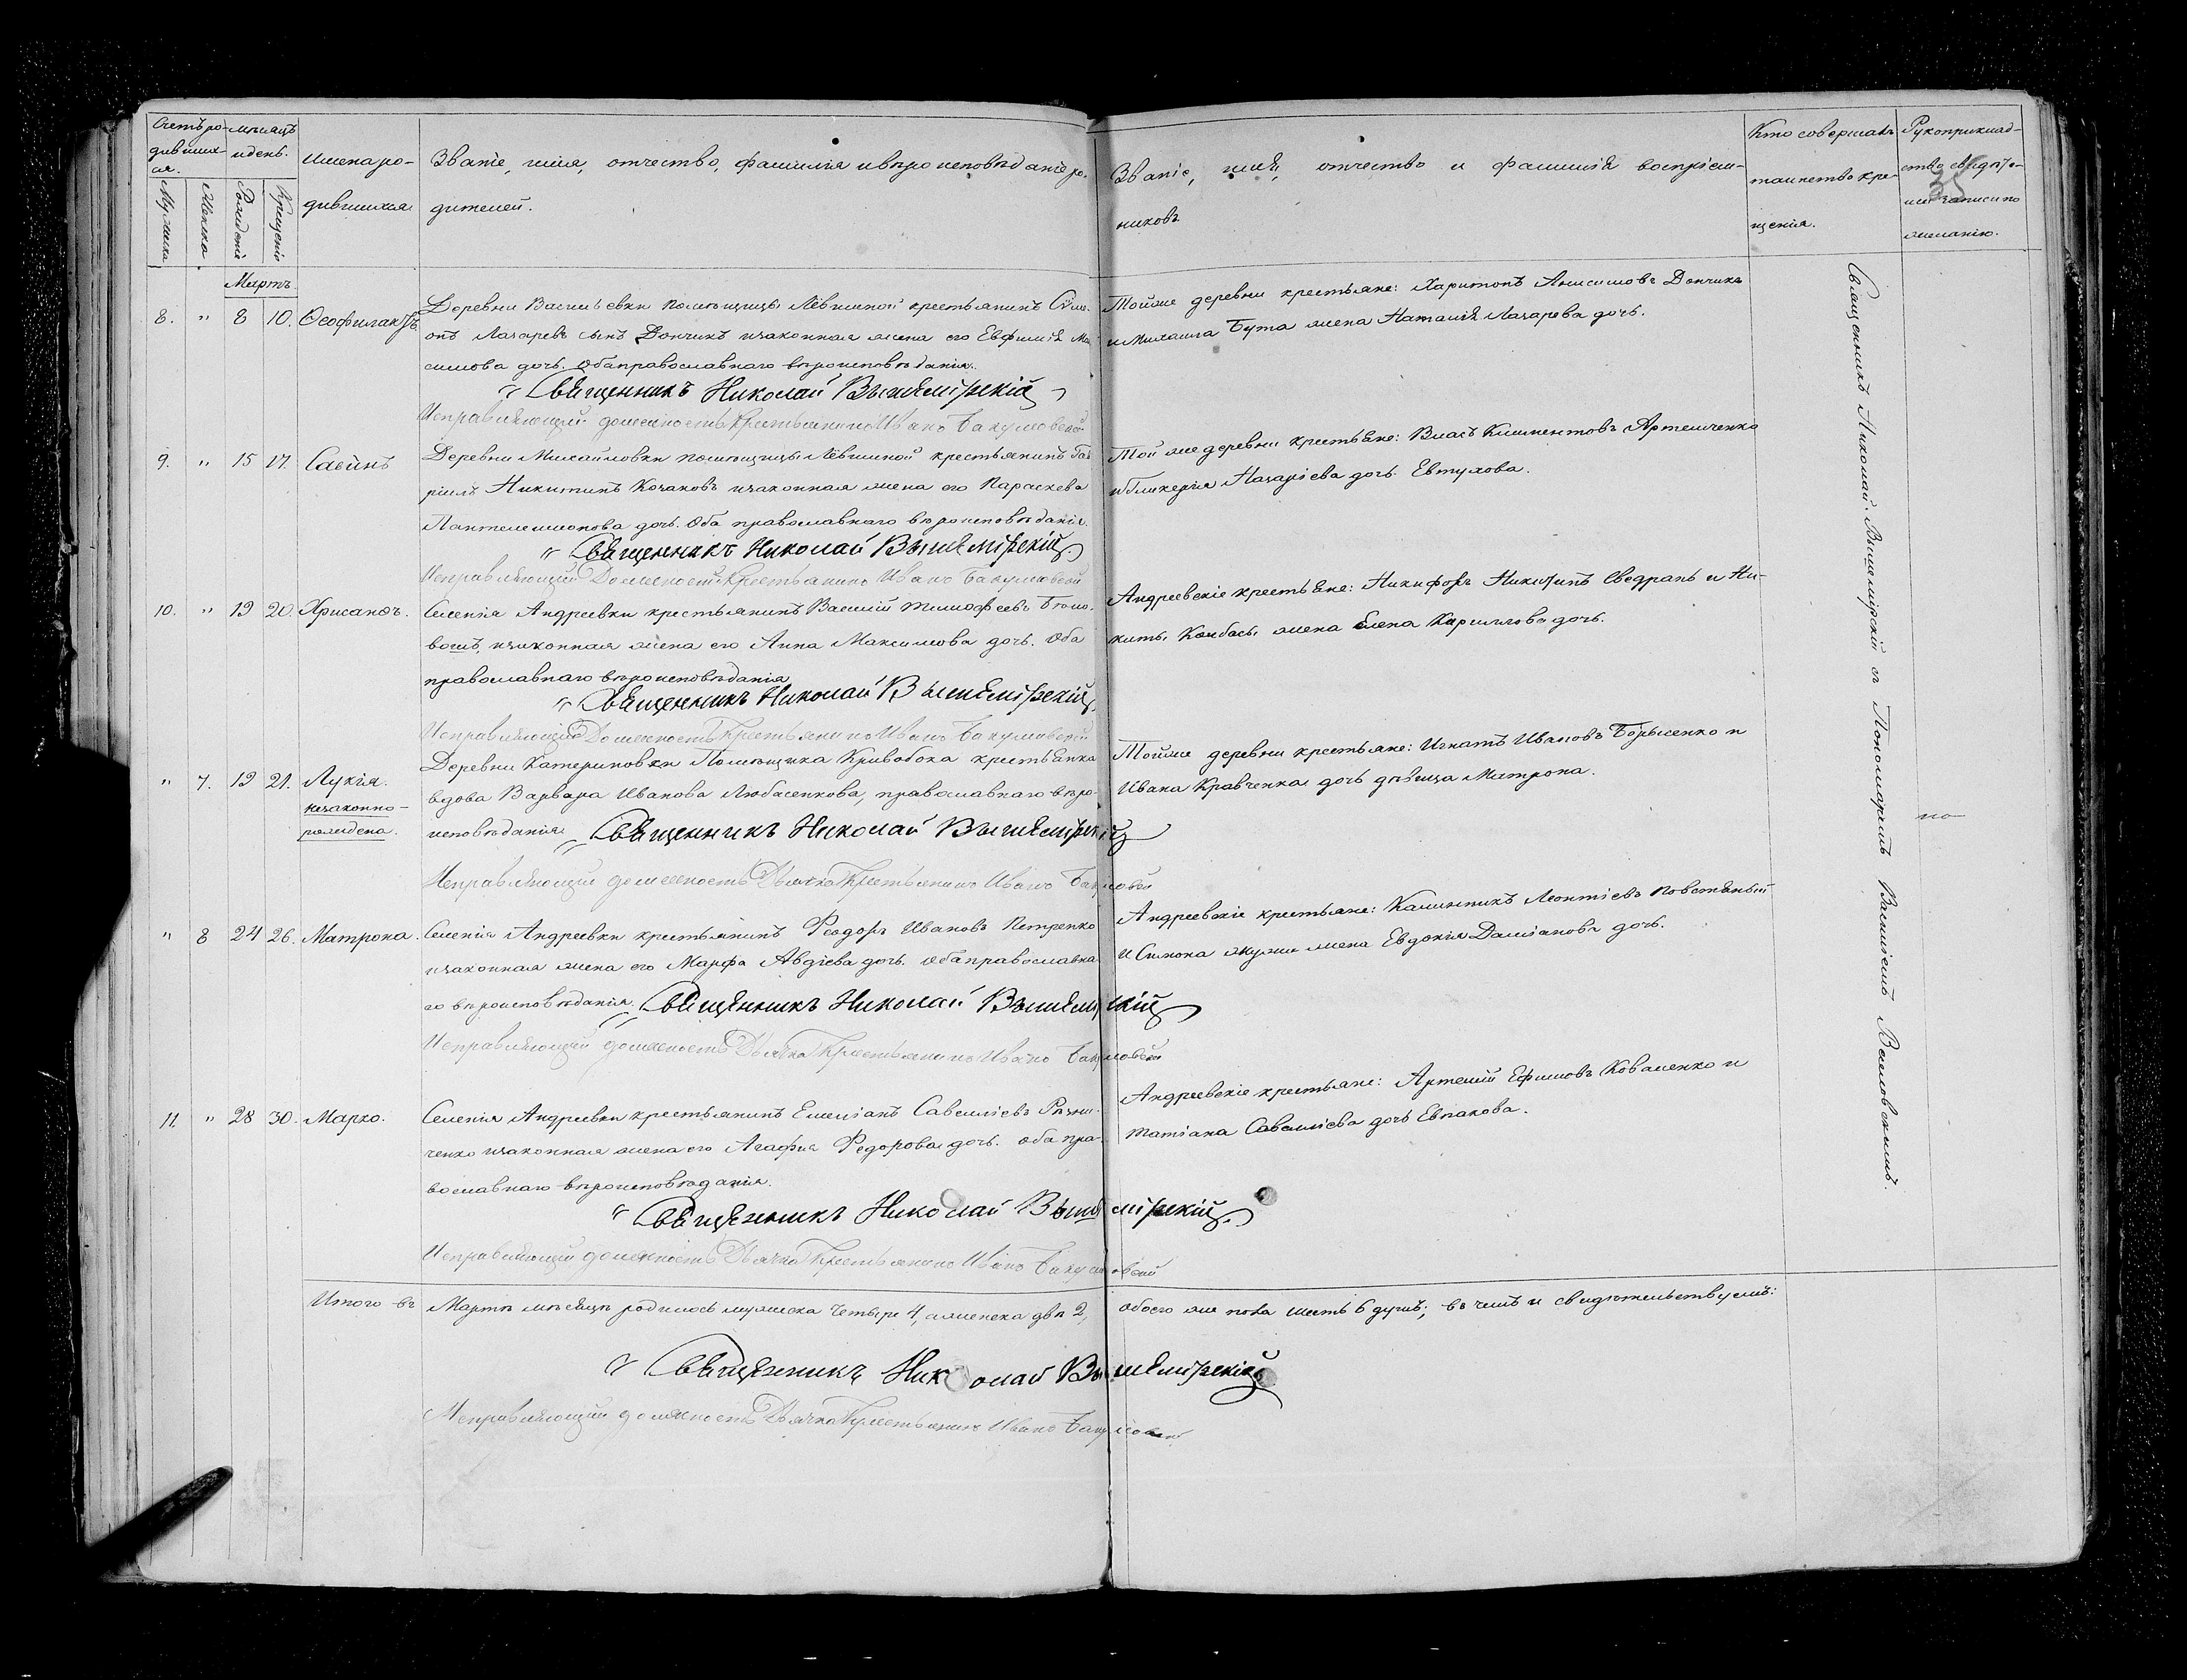 Счетъ ро-
дивших-
ся.
мѣсяцъ
и день.
Мужска
Женска
Рожденіе
Крещеніе
Имена ро-
дившихся
Званіе, имя, отчество, фамилія и вѣроисповѣданіе ро-
дителей.
Званіе, имя, отчество и фамилія воспріем-
никовъ
Кто совершалъ
таинство кре-
щенія.
Рукоприклад-
ство свидѣте-
лей записи по
желанію.
35
Мартъ.
8. " 8 10. Ѳеофилактъ
Деревни Васильевки помѣщицы Лёвшиной крестьянинъ Сим-
онъ Лазаревъ сынъ Дончикъ и законная жена его Евфимія Ма
симова дочь. Оба православнаго вѣроисповѣданія.
Священникъ Николай Вышемірскій
Исправляющій должность крестьянинъ Иванъ
Тойже деревни крестьяне: Харитонъ Анисимовъ Дончикъ
и Михаила Бута жена Наталія Лазарева дочь.
9. " 15 17. Савинъ
Деревни Михайловки помѣщицы Лёвшиной крестьянинъ Гав
ріилъ Никитинъ Козаковъ и законная жена его Параскева
Пантелеимонова дочь. Оба православнаго вѣроисповѣданія.
Священникъ Николай Вышемірскій
Исправляющій Должность крестьянинъ Иванъ
Той же деревни крестьяне: Власъ Климентовъ Артемченко
и Гликерія Назаріева дочь Евтухова.
10. " 19 20. Хрисанѳъ.
Селенія Андреевки крестьянинъ Василій Тимофеевъ
и законная жена его Анна Максимова дочь. Оба
православнаго вѣроисповѣданія
Священникъ Николай Вышемірскій
Исправляющій Должность Крестьянинъ Иванъ
Андреевскіе крестьяне: Никифоръ Никитинъ Сведранъ и Ни-
киты Колбасы жена Елена Кириллова дочь.
" 7. 19 21. Лукія.
незаконно-
рождена.
Деревни Катериновки Помѣщика Кривобока крестьянка
вдова Варвара Иванова Любасенкова, православнаго вѣро-
исповѣданія Священникъ Николай Вышемірскій
Исправляющій должность Дьячка Крестьянинъ Иванъ
Тойже деревни крестьяне: Игнатъ Ивановъ Борысенко и
Ивана Кравченка дочь дѣвица Матрона.
" 8 24 26. Матрона.
Селенія Андреевки крестьянинъ Ѳеодоръ Ивановъ Петренко
и законная жена его Марфа Авдіева дочь. Оба православна
го вѣроисповѣданія. Священникъ Николай Вышемірскій
Исправляющій должность Дьячка Крестьянинъ Иванъ
Андреевскіе крестьяне: Калинникъ Леонтіевъ Повстяный
и Симона жена Евдокія Даміанова дочь.
11. " 28 30. Марко.
Селенія Андреевки крестьянинъ Емеліанъ Савеліевъ Рѣзни-
ченко и законная жена его Агафія Федорова дочь. Оба пра-
вославнаго вѣроисповѣданія.
Священникъ Николай Вышемірскій
Исправляющій должность Дьячка Крестьянинъ Иванъ
Андреевскіе крестьяне: Артемій Ефимовъ Коваленко и
Татіана Савеліева дочь Евпакова.
Священникъ Николай Вышемірскій съ Пономаремъ Василіемъ Веселовскимъ.
Итого въ Мартѣ мѣсяцѣ родилось мужеска Четыре 4, а женска двѣ 2, обоего же пола шесть 6 душъ; въ чемъ и свидѣтельствуемъ:
Священникъ Николай Вышемірскій
Исправляющій должность Дьячка Крестьянинъ Иванъ